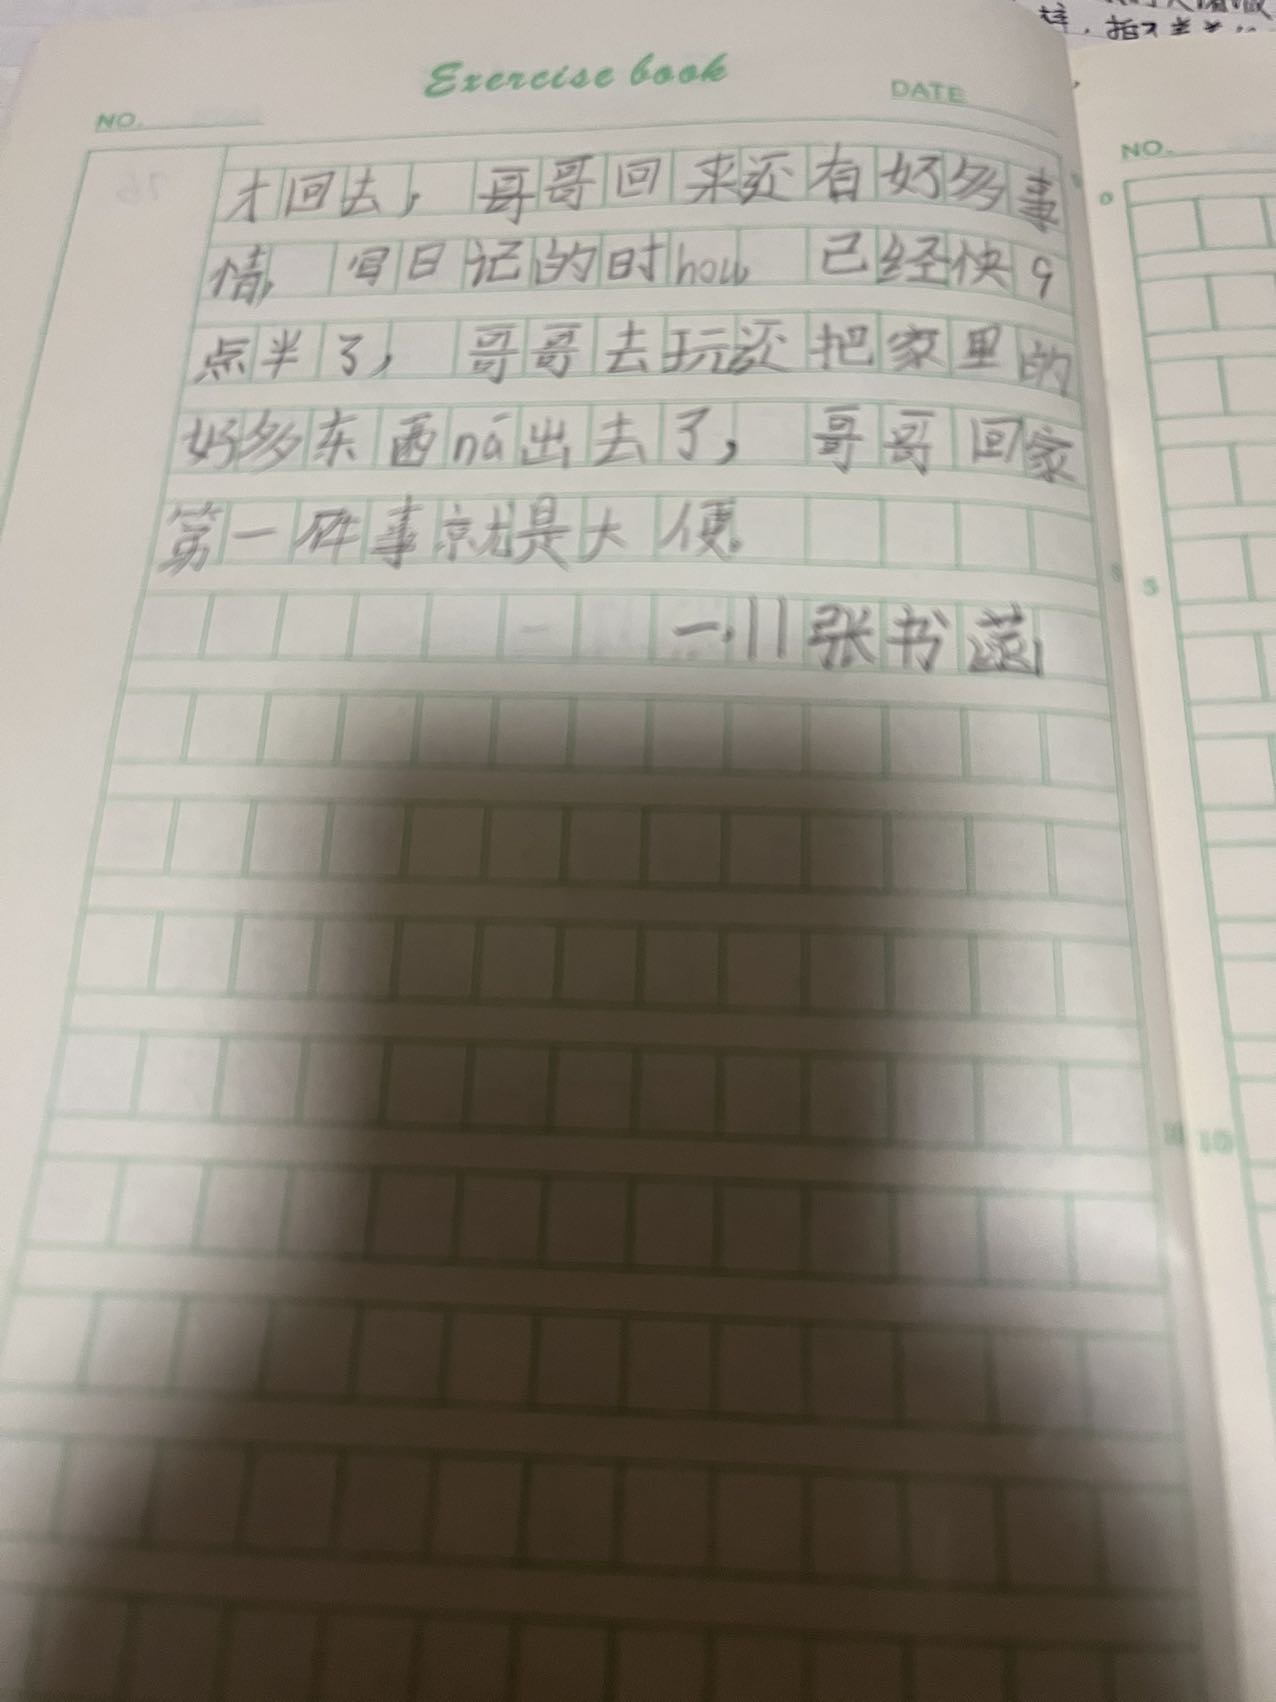 Exercise book
NO.
DATE
才回去，哥哥回来还有好多事
情，写日记的时hou 已经快9
点半了，哥哥去玩还把家里的
好多东西ná出去了，哥哥回家
第一件事就是大便。
一.11张书
NO.
5
10